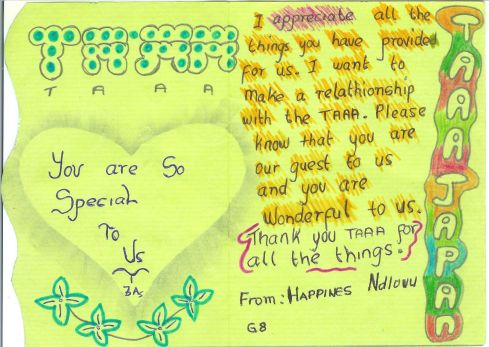 TAAA
T A A A
You are So
Special
To
Us
3As
I appreciate all the
things you have provided
for us. I want to
make a relathionship
with the TAAA. Please
know that you are
our guest to us
and you are
wonderful to us.
Thank you TAAA for
all the things.
From: HAPPINES Ndlovu
G8
TAAA JAPAN